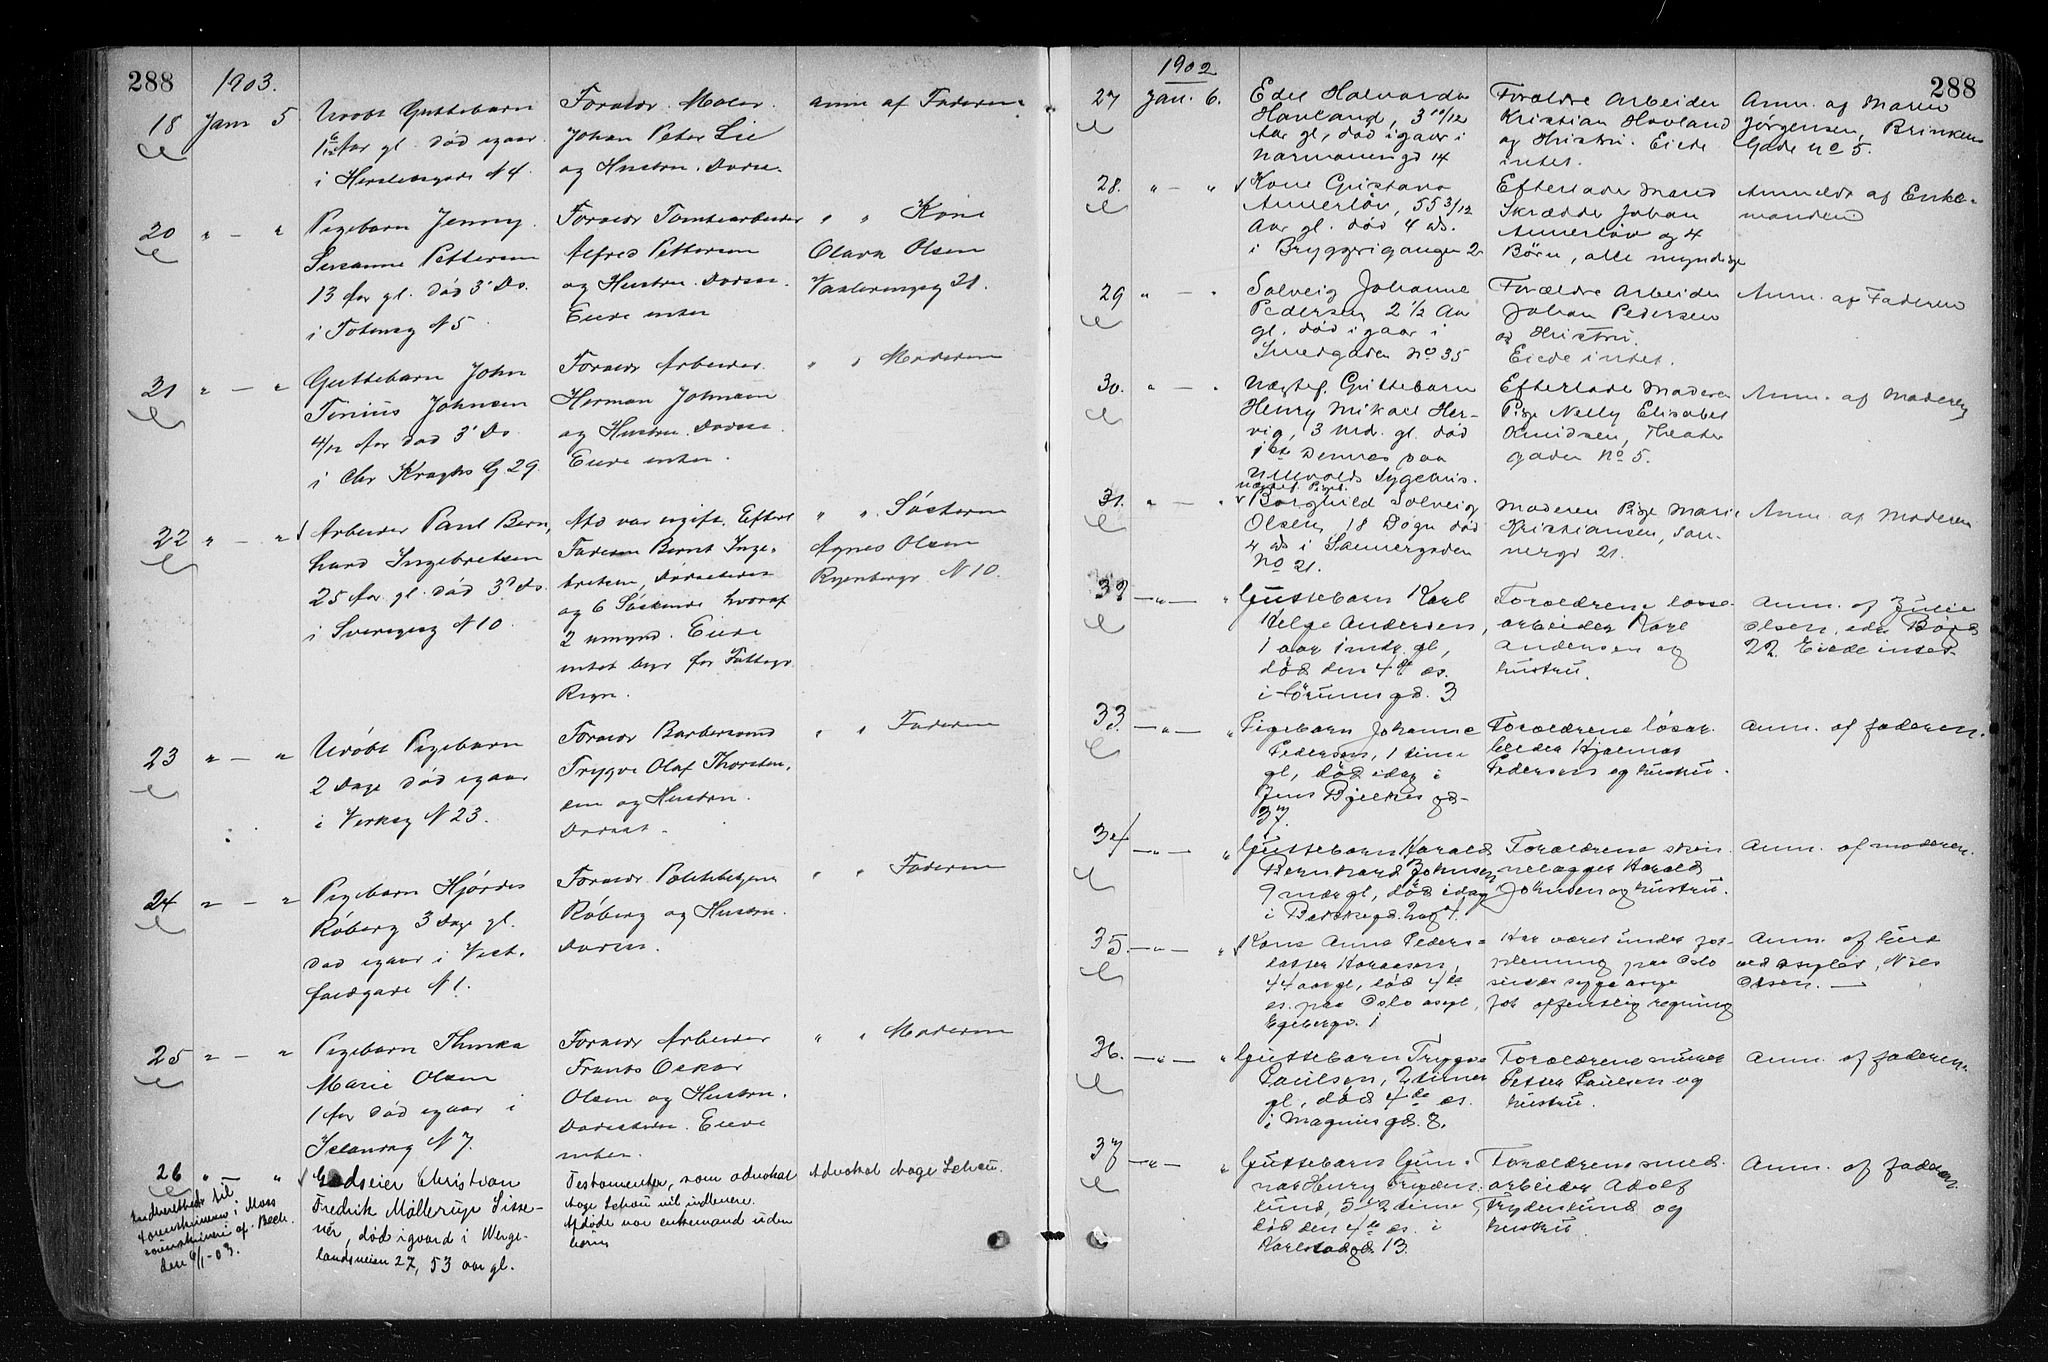 288
1903.
18 Jan 5
Udöbt Guttebarn
Aar gl. död igaar
i Herslebsgade N 4
Forældr. Maler
Johan Peter Lie
og Hustru.
Anm af Faderen
20 " — "
Pigebarn Jenny
Susanne Pettersen
13 Aar gl. död 3' Ds.
i Totensg N 5
Forældr Tomtearbeider
Alfred Pettersen
og Hustru.
Eiede intet
" " Kone
Olava Olsen
Vaaleringsg 21.
21 " — "
Guttebarn John
Johnsen
4/12 Aar död 3' Ds
i Chr Kraghs G. 29.
Forældr Arbeider
Herman Johnsen
og Hustru.
Eiede intet.
" " Moderen
22 " — "
Arbeider Paul Bern,
hard Ingebretsen
25 Aar gl. död 3' Ds.
i Sverigesg N 10
Afd var ugift. Efterl
Faderen Bernt Inge-
bretsen,
og 6 Söskende hvoraf
2 umynd. Eiede
intet begr for Fattigv
Regn.
" " Sösteren
Agnes Olsen
Ryenbergv. N 10.
23 " — "
Udöbt Pigebarn
2 Dage död igaar
i Verksg N 23.
Forældr Barbersvend
Trygve Olaf Thorsten,
sen og Hustru.
" " Faderen
24 " — "
Pigebarn Hjördis
Röberg 3 Dage gl.
död igaar i Vest,
foldgade N 1.
Forældr Politibetjent
Röberg og Hustru.
" " Faderen
25 " — "
Pigebarn Thinka
Marie Olsen
1 Aar död igaar i
Islandsg N 7.
Forældr Arbeider
Frants Oskar
Olsen og Hustru.
Eiede
intet.
" " Moderen
26 " — "
Underrettet til
i Moss
af Bech
den 6/1-03.
Godseier Christian
Fredrik Mällerup Sisse-
nér, död igaard i Werge-
landsveien 27, 53 aar gl.
Testamenter, som advokat
Aage Schou vil indlevere.
Afdöde var enkemand uden
börn
Advokat Aage Schou.
288
1902
27 Jan. 6.
Edel Halvarda
Havland, 3 11/12
Aar gl, död igaar i
Normannsgd 14
Forældre Arbeider
Kristian Havland
og Hustru. Eiede
intet.
Anm. af Maren
Jörgensen, Brinkens
Gade No 5.
28. " — "
Kone Gustava
Annerlöv, 55 3/12
Aar gl. död 4 ds.
i Bryggerigangen 2
Efterlader Mand
Skrædder Johan
Annerlöv og 4
Börn, alle myndige
Anmeldt af Enke-
manden
29 " — "
Solveig Johanne
Pedersen 2 1/2 Aar
gl. död igaar i
Smedgaden No 35
Forældre Arbeider
Johan Pedersen
og Hustru.
Eiede intet.
Anm. af Faderen
30. " — "
Uægtef. Guttebarn
Henry Mikael Her-
vig, 3 Md. gl. död
1ste Dennes paa
Ullevolds Sygehus.
Efterlade Moderen
Pige Nelly Elisabet
Knudsen, Theater
gaden No 5.
Anm. af Moderen
31. " — "
Uægtef. Pigeb.
Borghild Solveig
Olsen, 18 Dögn död
4 ds i Skinnergaden
No 21.
Moderen Pige Marie
Kristiansen,
21.
Anm. af Moderen
32 — " — "
Guttebarn Karl
Helge Andersen,
1 aar 1 mdr. gl,
död den 4de ds.
i Sörumsgd. 3
Forældrene losse-
arbeider Karl
Andersen og
hustru.
Anm. af Julie
Olsen,
22. Eiede intet.
33 — " — "
Pigebarn Johanne
Pedersen, 1 time
gl, död idag i
Jens Bjelkes gd-
37.
Forældrene lösar-
beider Hjalmar
Pedersen og hustru.
Anm. af faderen.
34 — " — "
Guttebarn Harald
Bernhard Johnsen
9 mdr gl, död idag
i
Forældrene sten-
nelægger Harald
Johnsen og hustru.
Anm. af moderen.
35. — " — "
Kone Anne Peders-
datter Haraasen,
44 aar gl, död 4de
ds. paa Oslo asyl,
Egebergs. 1
Har været under for-
pleining paa Oslo
sindssygeasyl
for offentlig regning
Anm. af bud
ved asylet, Nils
Olsen. —
36. — " — "
Guttebarn Trygve
Paulsen, 2 timer
gl, död 4de ds.
i Magnusgd. 8.
Forældrene murer
Petter Paulsen og
hustru.
Anm. af faderen.
37 — " — "
Guttebarn Gun-
nar Henry Fryden-
lund, 5 1/2 time,
död den 4de ds. i
Karlstadgd 13.
Forældrene smed-
arbeider Adolf
Frydenlund og
hustru.
Anm. af faderen.